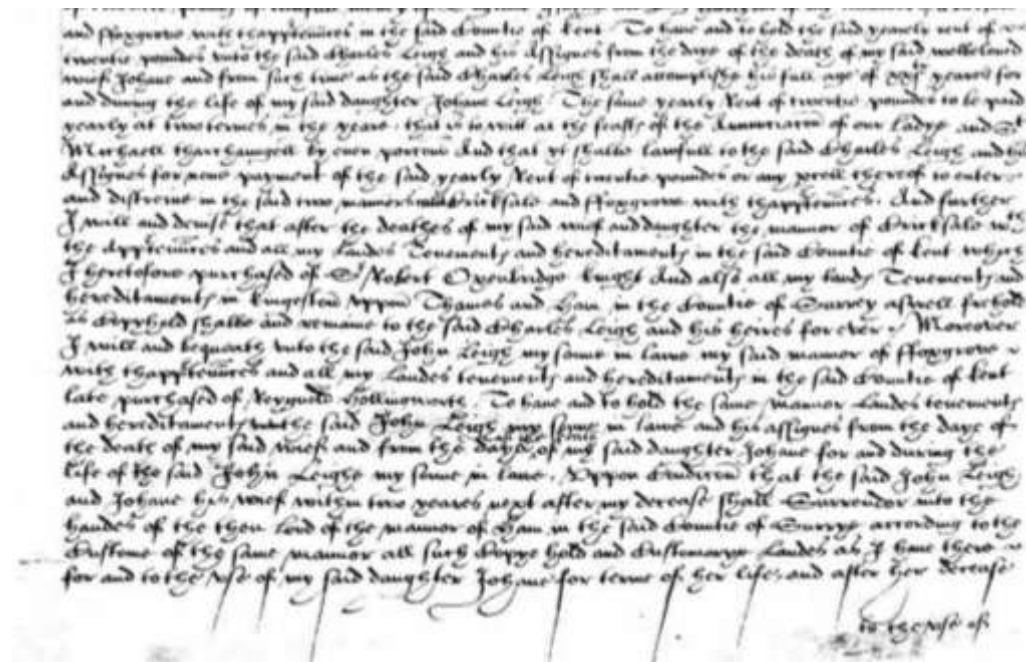 and ffoxgrove with thapp'tenn'ces in the said Countie of Kent. To have and to hold the said yearly rent of
twentie poundes unto the said Charles Leigh and his Assignes from the daye of the death of my said welbeloved
wief Johane and from such time as the said Charles Leigh shall accomplishe his full age of xxj yeares for
and during the life of my said daughter Johane Leigh. The same yearly Rent of twentie poundes to be paid
yearly at two termes in the yeare, that is to will at the feasts of the Annunciac'on of our Ladye and St
Michaell tharchaungell by even porc'ons And that yt shalbe lawfull to the said Charles Leigh and his
Assignes for none payment of the said yearly Rent of twentie poundes or any p'cell thereof to enter
and distreine in the said two manners Bricksale and ffoxgrove with thapp'tenn'ces. And further
I will and devise that after the deathes of my said wief and daughter the mannor of Bricksale wth
the App'tenn'ces and all my Landes Tenements and hereditaments in the said Countie of Kent which
I heretofore purchased of Sr Robert Oxenbridge knight And also all my lands Tenements and
hereditaments in Kingeston uppon Thames and Ham in the Countie of Surrey aswell frehold
as Copyhold shalbe and remaine to the said Charles Leigh and his heires for ever. Moreover
I will and bequeath unto the said John Leigh my sonne in lawe my said mannor of ffoxgrove
with thapp'tenn'ces and all my Landes tenements and hereditaments in the said Countie of Kent
late purchased of Hollinworth. To have and to hold the same mannor Landes tenements
and hereditaments to the said John Leigh my sonne in lawe and his assignes from the daye of
the death of my said wief and from the daye of the death of my said daughter Johane for and during the
life of the said John Leighe my sonne in lawe. Uppon Condic'on that the said John Leigh
and Johane his wief within two yeares next after my decease shall Surrendor into the
handes of the then Lord of the mannor of Ham in the said Countie of Surrye according to the
Custome of the same mannor all such Coppe hold and Customarye Landes as I have there
for and to the use of my said daughter Johane for terme of her life, and after her decease
to the use of